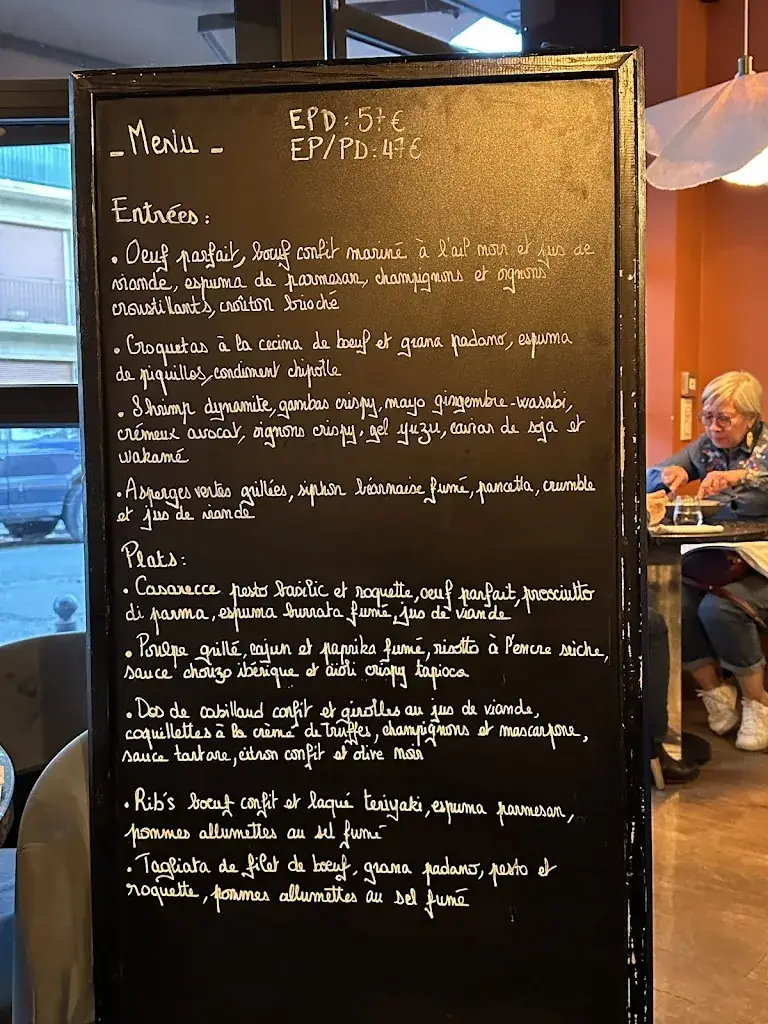 _ Menu _
EPD : 57€
EP/PD : 47€
Entrées :
• Oeuf parfait, bœuf confit mariné à l'ail noir et jus de
viande, espuma de parmesan, champignons et oignons
croustillants, croûton brioché
• Croquetas à la cecina de bœuf et grana padano, espuma
de piquillos, condiment chipotle
• Shrimp dynamite, gambas crispy, mayo gingembre-wasabi,
crémeux avocat, oignons crispy, gel yuzu, caviar de soja et
wakamé
• Asperges vertes grillées, siphon béarnaise fumé, pancetta, crumble
et jus de viande
Plats :
• Casarecce pesto basilic et roquette, oeuf parfait, prosciutto
di parma, espuma burrata fumé, jus de viande
• Poulpe grillé, cajun et paprika fumé, risotto à l'encre seiche,
sauce chorizo ibérique et aïoli crispy tapioca
• Dos de cabillaud confit et girolles au jus de viande,
coquillettes à la crème de truffes, champignons et mascarpone,
sauce tartare, citron confit et olive noir
• Rib's bœuf confit et laqué teriyaki, espuma parmesan,
pommes allumettes au sel fumé
• Tagliata de filet de bœuf, grana padano, pesto et
roquette, pommes allumettes au sel fumé